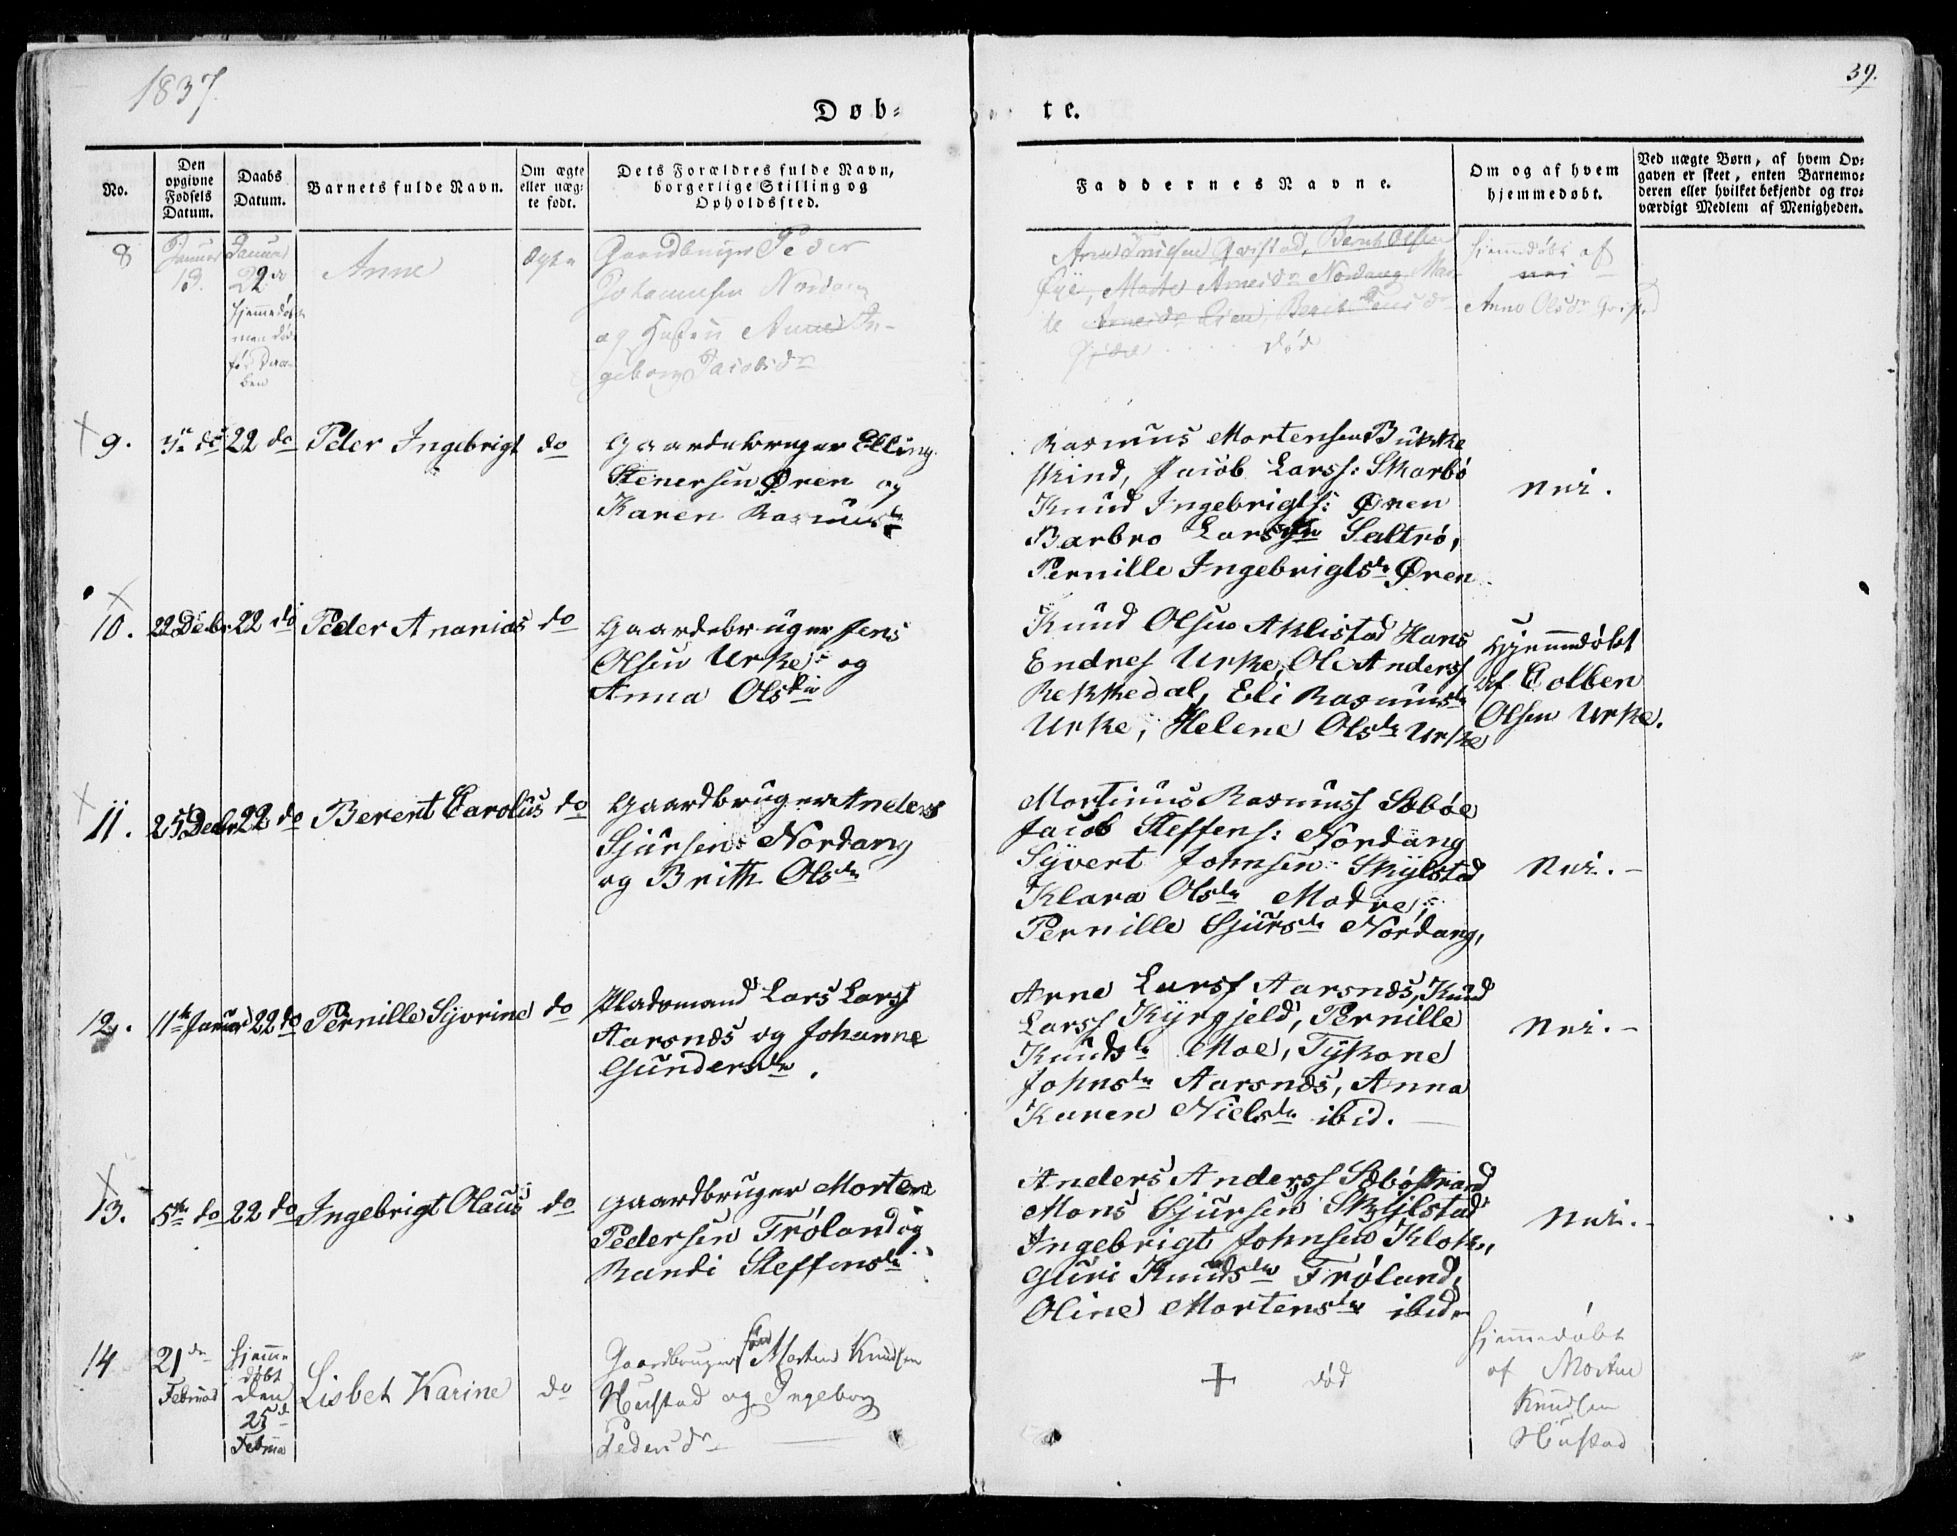 1837.
39.
Døb-
te.
No.
Den opgivne Fødsels Datum.
Daabs Datum.
Barnets fulde Navn.
Om ægte eller uæg- te født.
Dets Forældres fulde Navn, borgerlige Stilling og Opholdssted.
Faddernes Navne.
Om og af hvem hjemmedøbt.
Ved uægte Børn, af hvem Op- gaven er skeet, enten Barnemo- deren eller hvilket bekjendt og tro- værdigt Medlem af Menigheden.
8
Januar
19.
Januar
22 de
hjemmedøbt
men død
før Daa-
ben
Anne
ægte
Gaardbruger Peder
Johannesen Nordang
og Hustru Anne In-
geborg Jacobsdr
Qvistad, Bernt Olsen
Øye, Marte Arnesdr Nordang, Mar-
te
død
hjemmedøbt af
nei
Anne Olsdr Qvistad
9.
22 do
Peder Ingebrigt
do
Gaardebruger Elling
Stenersen Øren og
Karen Rasmusdr
Rasmus Mortensen Bukke
skind, Jacob Larss: Skarbø
Knud Ingebrigtss: Øren
Barbro Larsdr Saltrø,
Pernille Ingebrigtsdr Øren
Nei.
10.
22 Debr
22 do
Peder Ananias
do
Gaardebruger Jens
Olsen Urke og
Anna Olsdtr
Knud Olsen Aklistad Hans
Endres Urke, Ole Anderss
Rekkedal, Eli Rasmusdr
Urke, Helene Olsdr Urke
Hjemmedøbt
af Colben
Olsen Urke.
11.
25 Debr
22 do
Berent Carolus
do
Gaardbruger Anders
Sjursen Nordang
og Brith Olsdr
Mortinus Rasmuss Sæbøe
Jacob Steffens: Nordang
Syvert Johnsen Skylstad
Klara Olsdr Modre,
Pernille Sjursdr Nordang,
Nei. -
12.
11te Januar
22 do
Pernille Syvrine
do
Pladsmand Lars Larss
Aarsnæs og Johanne
Gundersdr.
Arne Larss Aarsnæs, Knud
Larss Kyrgjeld, Pernille
Knudsdr Moe, Tykone
Johnsdr Aarsnæs, Anna
Karen Nielsdr ibid.
Nei. -
13.
5te do
22 do
Ingebrigt Olaus
do
Gaardbruger Morten
Pedersen Trøland og
Randi Steffensdr
Anders Anderss Sæbøstrand
Mons Sjursen Skylstad
Ingebrigt Johnsen Klok,
Guri Knudsdr Trøland,
Oline Mortensdr ibid
Nei. -
14
21 de
Februar
hjemme
døbt
den
25 d
Februar
Lisbet Karine
do
Gaardbruger Morten Knudsen
Hustad og Ingeborg
Pedersdr
+ død
hjemmedøbt
af Morten
Knudsen
Hustad